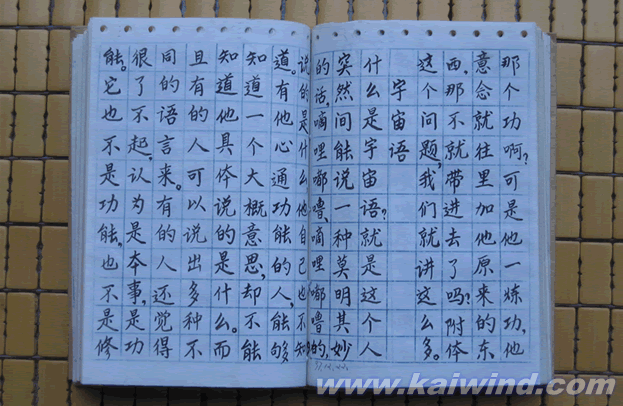 那个功啊?可是他一炼功,他
意念就往里加他原来的东
西,那不就带进去了吗?附体
这个问题,我们就讲这么多。
宇宙语
什么是宇宙语?就是这个人
突然间能说一种莫明其妙
的话,嘀哩嘟噜、嘀哩嘟噜的,
说的是什么他自己也不知
道。有他心通功能的人,能够
知道一个大概意思,却不能
知道他具体说的是什么。而
且有的人可以说出多种不
同的语言来。有的人还觉得
很了不起,认为是本事,是功
能。它也不是功能。也不是修
www.kaiwind.com